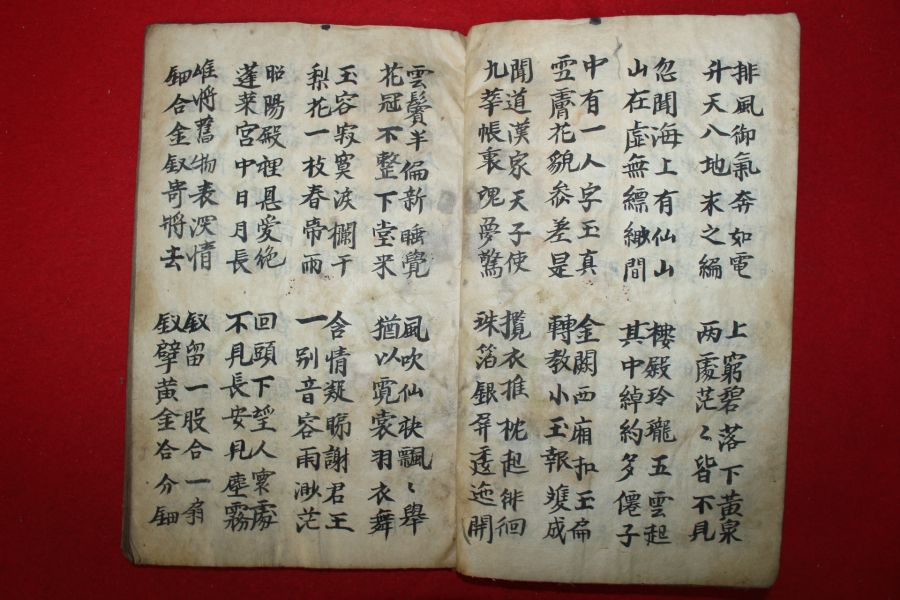 排風御氣奔如電
升天八地求之編
上窮碧落下黃泉
兩處茫〻皆不見
忽聞海上有仙山
山在虛無縹緲間
樓殿玲瓏五雲起
其中綽約多僊子
中有一人字玉真
雪膚花貌參差是
金闕西廂扣玉扃
轉教小玉報雙成
聞道漢家天子使
九華帳裏魂夢驚
攬衣推枕起徘徊
珠箔銀屏透迤開
雲鬢半偏新睡覺
花冠不整下堂来
風吹仙袂飄〻舉
猶以霓裳羽衣舞
玉容寂寞淚欄干
梨花一枝春帶雨
含情凝睇謝君王
一別音容兩渺茫
昭陽殿裡恩愛絕
蓬萊宮中日月長
回頭下望人寰處
不見長安見塵霧
唯將舊物表深情
鈿合金釵寄將去
釵留一股合一扇
釵擘黃金合分鈿